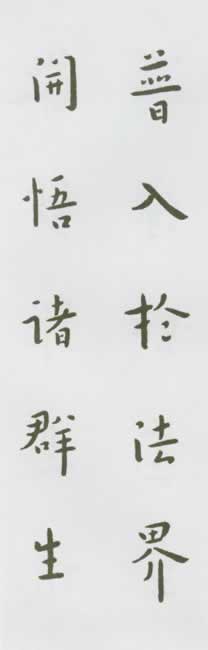 普入於法界
開悟诸群生